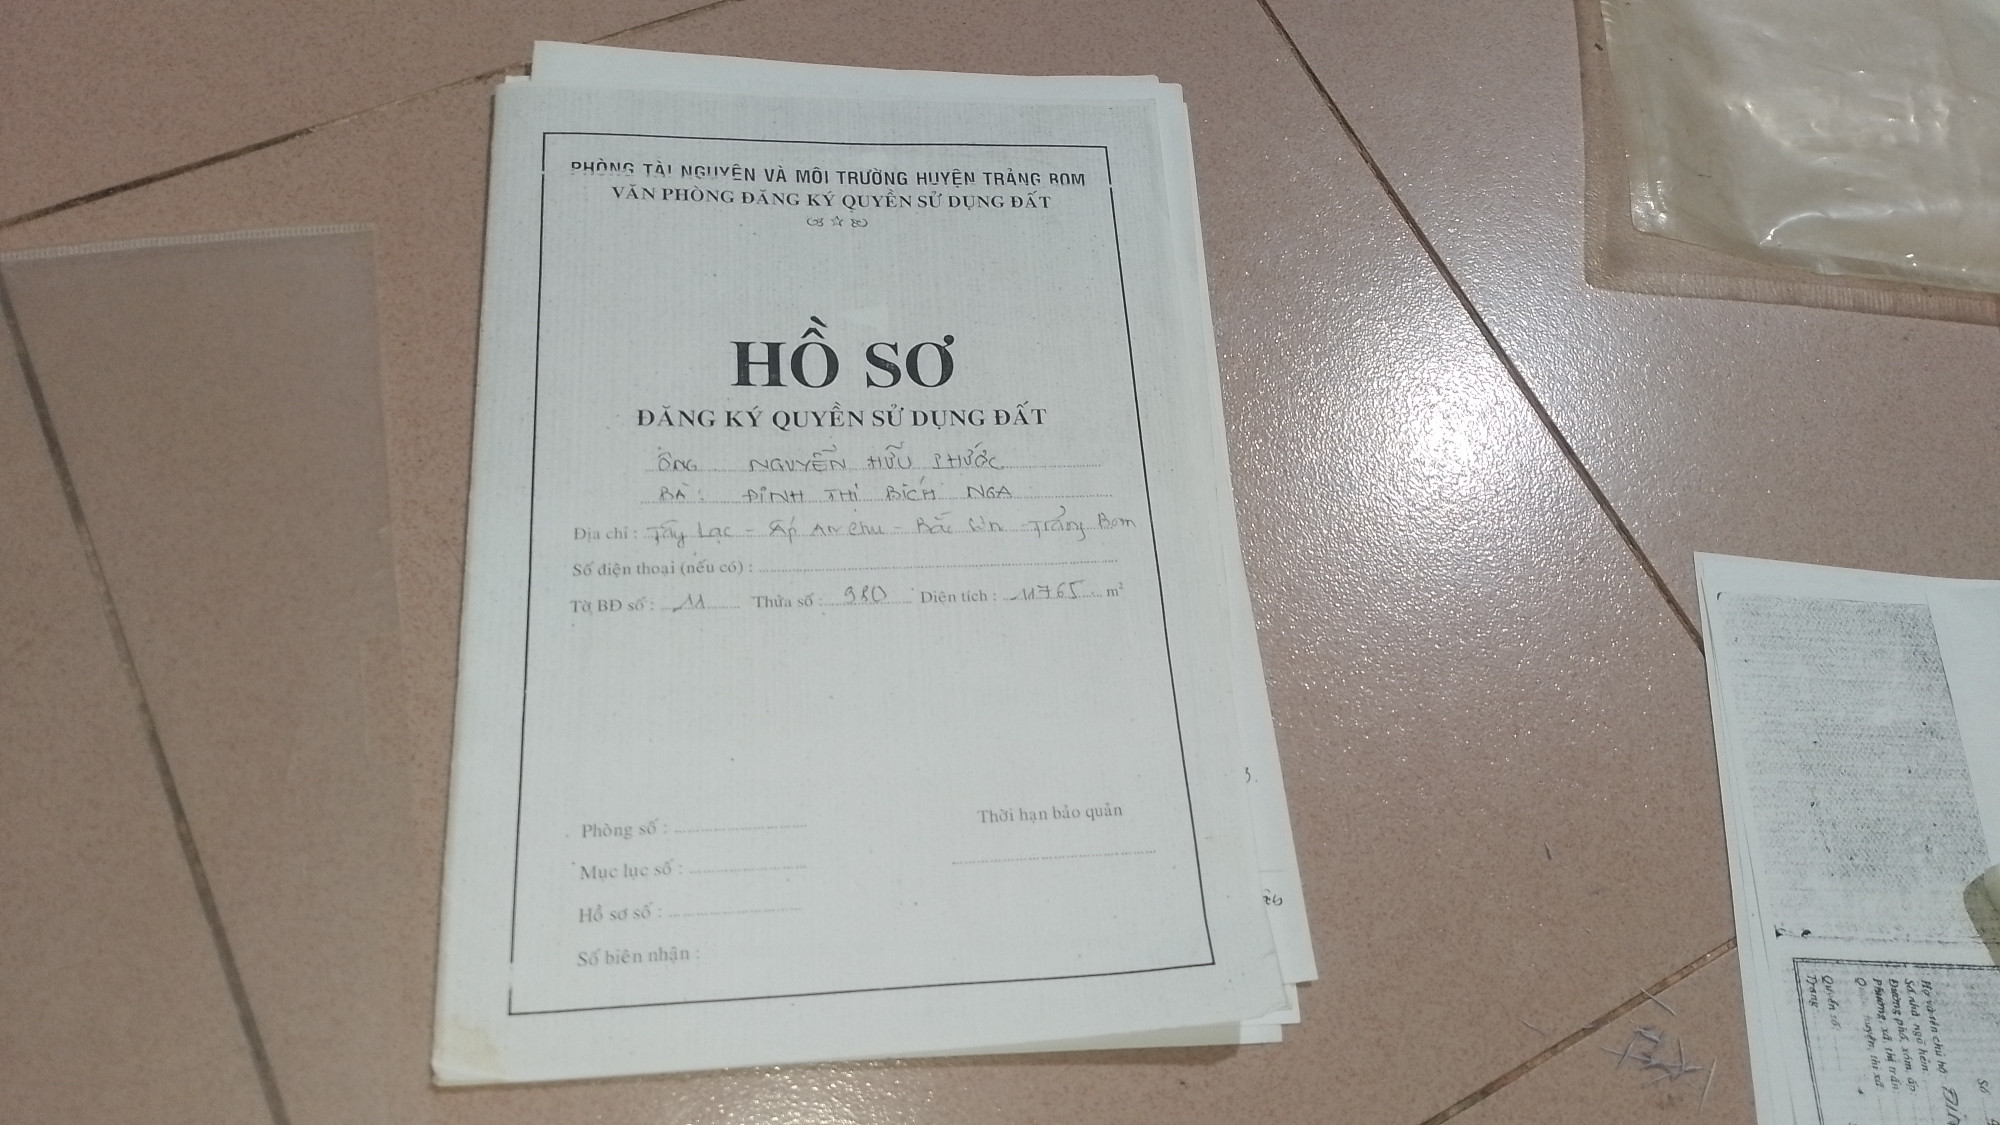 PHÒNG TÀI NGUYÊN VÀ MÔI TRƯỜNG HUYỆN TRẢNG BOM
VĂN PHÒNG ĐĂNG KÝ QUYỀN SỬ DỤNG ĐẤT
HỒ SƠ
ĐĂNG KÝ QUYỀN SỬ DỤNG ĐẤT
ÔNG NGUYỄN HỮU PHƯỚC
BÀ: ĐINH THỊ BÍCH NGA
Địa chỉ : Tây Lạc - Ấp An Chu - Bắc Sơn - Trảng Bom
Số điện thoại (nếu có) :
Tờ BĐ số : 11 Thửa số : 980 Diện tích : 11765 m²
Phòng số :
Thời hạn bảo quản
Mục lục số :
Hồ sơ số :
Số biên nhận :
Số
Họ và tên chủ hộ
Số nhà, ngõ hẻm:
Đường phố, xóm, ấp
Phường, xã, thị trấn
Quyển số:
Trang: